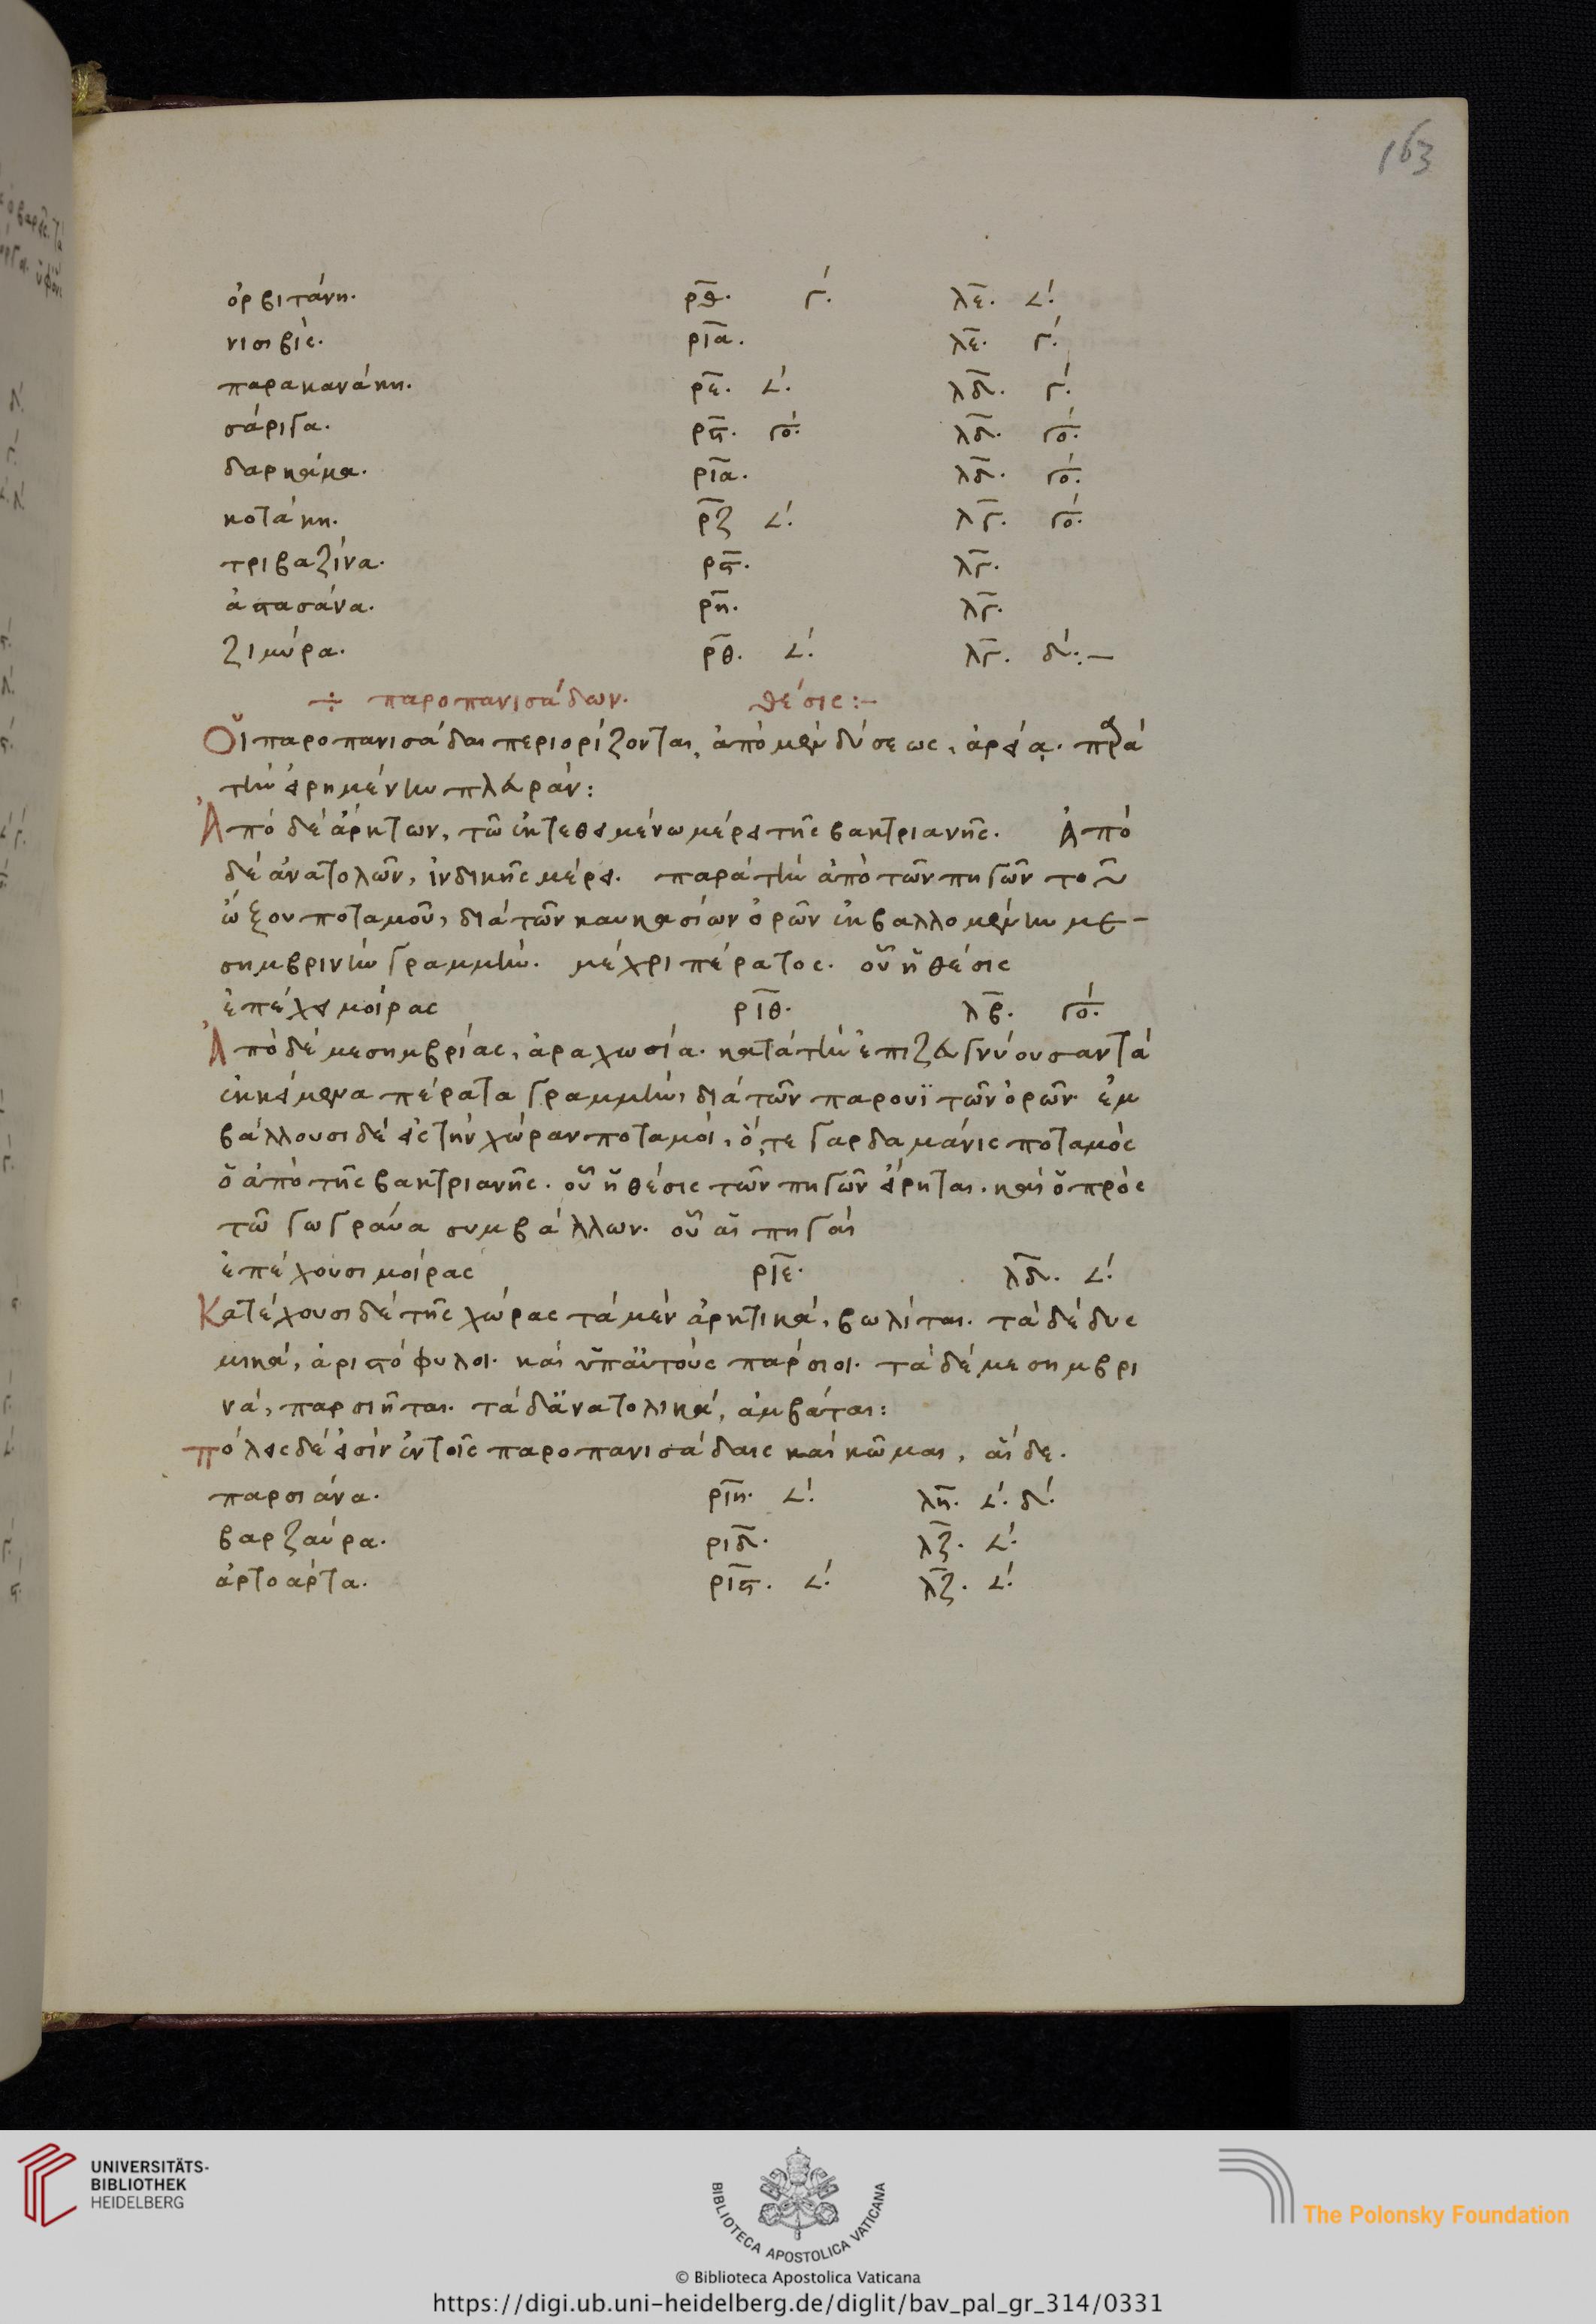 163
ὀρβιτάνη. ρ̅θ̅. γ΄. λ̅ε̅. 𐅵΄.
νισιβίς. ρ̅ι̅α̅. λ̅ε̅. γ΄.
παρακανάκη. ρ̅ε̅. 𐅵΄. λ̅δ̅. γ΄.
σάριγα. ρ̅ϛ̅. γο΄. λ̅δ̅. γο΄.
δαρκάμα. ρ̅ι̅α̅. λ̅δ̅. γο΄.
κοτάκη. ρ̅ζ̅ 𐅵΄. λ̅γ̅. γο΄.
τριβαζίνα. ρ̅ϛ̅. λ̅γ̅.
ἀστασάνα. ρ̅η̅. λ̅γ̅.
ζιμύρα. ρ̅θ̅. 𐅵΄. λ̅γ̅. δ΄:—
÷ παροπανισάδων. θέσις:—
Οἱ παροπανισάδαι περιορίζονται, ἀπὸ μὲν δύσεως, ἀρεία. παρὰ
τὴν εἰρημένην πλευράν:
Ἀπὸ δὲ ἄρκτων, τῶ ἐκτεθειμένω μέρει τῆς βακτριανῆς. Ἀπὸ
δὲ ἀνατολῶν, ἰνδικῆς μέρει. παρὰ τὴν ἀπὸ τῶν πηγῶν τοῦ
ὤξου ποταμοῦ, διὰ τῶν καυκασίων ὀρῶν ἐκβαλλομένην με-
σημβρινὴν γραμμὴν. μέχρι πέρατος. οὗ ἡ θέσις
ἐπέχει μοίρας ρ̅ι̅θ̅. λ̅β̅. γο΄.
Ἀπὸ δὲ μεσημβρίας, ἀραχωσία. κατὰ τὴν ἐπιζευγνύουσαν τὰ
ἐκκείμενα πέρατα γραμμὴν, διὰ τῶν παρουϊτῶν ὀρῶν. ἐμ
βάλλουσι δὲ εἰς τὴν χώραν ποταμοί, ὅ,τε γαρδαμάνις ποταμὸς
ὁ ἀπὸ τῆς βακτριανῆς. οὗ ἡ θέσις τῶν πηγῶν εἴρηται. καὶ ὁ πρὸς
τῶ γωγραύα συμβάλλων. οὗ αἱ πηγαὶ
ἐπέχουσι μοίρας ρ̅ι̅ε̅. λ̅δ̅. 𐅵΄.
Κατέχουσι δὲ τῆς χώρας τὰ μὲν ἀρκτικά, βωλίται. τὰ δὲ δυς
μικά, ἀριστόφυλοι. καὶ ὑπ' αὐτοὺς πάρσιοι. τὰ δὲ μεσημβρι
νά, παρσιῆται. τὰ δ' ἀνατολικά, ἀμβάται:
πόλεις δέ εἰσὶν ἐν τοῖς παροπανισάδαις καὶ κῶμαι, αἵδε.
παρσιάνα. ρ̅ι̅η̅. 𐅵΄. λ̅η̅. 𐅵΄. δ΄.
βαρζαύρα. ρ̅ι̅δ̅. λ̅ζ̅. 𐅵΄.
ἀρτοάρτα. ρ̅ι̅ϛ̅. 𐅵΄. λ̅ζ̅. 𐅵΄.
UNIVERSITÄTS-
BIBLIOTHEK
HEIDELBERG
BIBLIOTECA APOSTOLICA VATICANA
The Polonsky Foundation
© Biblioteca Apostolica Vaticana
https://digi.ub.uni-heidelberg.de/diglit/bav_pal_gr_314/0331